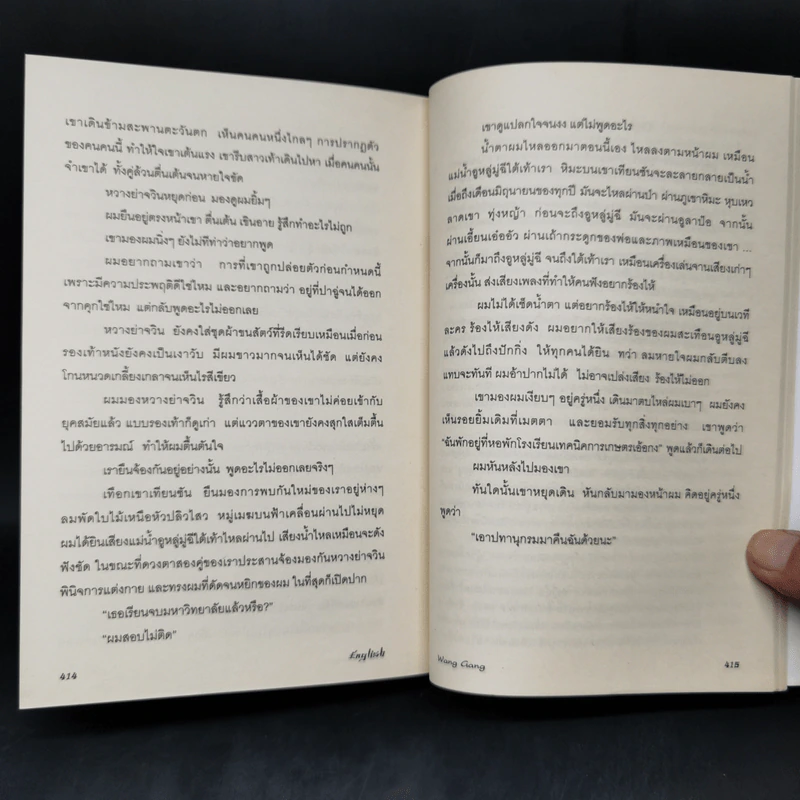 เขาเดินข้ามสะพานตะวันตก เห็นคนคนหนึ่งไกลๆ การปรากฏตัว
ของคนคนนี้ ทำให้ใจเขาเต้นแรง เขารีบสาวเท้าเดินไปหา เมื่อคนคนนั้น
จำเขาได้ ทั้งคู่ล้วนตื่นเต้นจนหายใจขัด
หวางย่าจวินหยุดก่อน มองดูผมยิ้มๆ
ผมยืนอยู่ตรงหน้าเขา ตื่นเต้น เขินอาย รู้สึกทำอะไรไม่ถูก
เขามองผมนิ่งๆ ยังไม่ทีท่าว่าอยากพูด
ผมอยากถามเขาว่า การที่เขาถูกปล่อยตัวก่อนกำหนดนี้
เพราะมีความประพฤติดีใช่ไหม และอยากถามว่า อยู่ที่ปาอู่จนได้ออก
จากคุกใช่ไหม แต่กลับพูดอะไรไม่ออกเลย
หวางย่าจวิน ยังคงใส่ชุดผ้าขนสัตว์ที่รีดเรียบเหมือนเมื่อก่อน
รองเท้าหนังยังคงเป็นเงาวับ มีผมขาวมากจนเห็นได้ชัด แต่ยังคง
โกนหนวดเกลี้ยงเกลาจนเห็นไรสีเขียว
ผมมองหวางย่าจวิน รู้สึกว่าเสื้อผ้าของเขาไม่ค่อยเข้ากับ
ยุคสมัยแล้ว แบบรองเท้าก็ดูเก่า แต่แววตาของเขายังคงสุกใสเต็มตื้น
ไปด้วยอารมณ์ ทำให้ผมตื้นตันใจ
เรายืนจ้องกันอยู่อย่างนั้น พูดอะไรไม่ออกจริงๆ
เทือกเขาเทียนซัน ยืนมองการพบกันใหม่ของเราอยู่ห่างๆ
ลมพัดใบไม้เหนือหัวปลิวไสว หมู่เมฆบนฟ้าเคลื่อนผ่านไปไม่หยุด
ผมได้ยินเสียงแม่น้ำอูหลู่มู่ฉีได้เท้าไหลผ่านไป เสียงน้ำไหลเหมือนจะดัง
ฟังชัด ในขณะที่ดวงตาสองคู่ของเราประสานจ้องมองกันหวางย่าจวิน
พินิจการแต่งกาย และทรงผมที่ดัดจนหยิกของผม ในที่สุดก็เปิดปาก
"เธอเรียนจบมหาวิทยาลัยแล้วหรือ?"
"ผมสอบไม่ติด"
414
English
เขาดูแปลกใจจนงง แต่ไม่พูดอะไร
น้ำตาผมไหลออกมาตอนนี้เอง ไหลลงตามหน้าผม เหมือน
แม่น้ำอูหลู่มู่ฉีใต้เท้าเรา หิมะบนเขาเทียนซันจะละลายกลายเป็นน้ำ
เมื่อถึงเดือนมิถุนายนของทุกปี มันจะไหลผ่านป่า ผ่านภูเขาหิมะ หุบเหว
ลาดเขา ทุ่งหญ้า ก่อนจะถึงอูหลู่มู่ฉี มันจะผ่านอูลาป๋อ จากนั้น
ผ่านเอี้ยนเอ๋ออัว ผ่านเถ้ากระดูกของพ่อและภาพเหมือนของเขา ...
จากนั้นก็มาถึงอูหลู่มู่ฉี จนถึงใต้เท้าเรา เหมือนเครื่องเล่นจานเสียงเก่าๆ
เครื่องนั้น ส่งเสียงเพลงที่ทำให้คนฟังอยากร้องไห้
ผมไม่ได้เช็ดน้ำตา แต่อยากร้องไห้ให้หนำใจ เหมือนอยู่บนเวที
ละคร ร้องไห้เสียงดัง ผมอยากให้เสียงร้องของผมสะเทือนอูหลู่มู่ฉี
แล้วดังไปถึงปักกิ่ง ให้ทุกคนได้ยิน ทว่า ลมหายใจผมกลับตีบลง
แทบจะทันที ผมอ้าปากไม่ได้ ไม่อาจเปล่งเสียง ร้องไห้ไม่ออก
เขามองผมเงียบๆ อยู่ครู่หนึ่ง เดินมาตบไหล่ผมเบาๆ ผมยังคง
เห็นรอยยิ้มเดิมที่เมตตา และยอมรับทุกสิ่งทุกอย่าง เขาพูดว่า
"ฉันพักอยู่ที่หอพักโรงเรียนเทคนิคการเกษตรเอ้อกง" พูดแล้วก็เดินต่อไป
ผมหันหลังไปมองเขา
ทันใดนั้นเขาหยุดเดิน หันกลับมามองหน้าผม คิดอยู่ครู่หนึ่ง
พูดว่า
"เอาปทานุกรมมาคืนฉันด้วยนะ"
Wang Gang
415